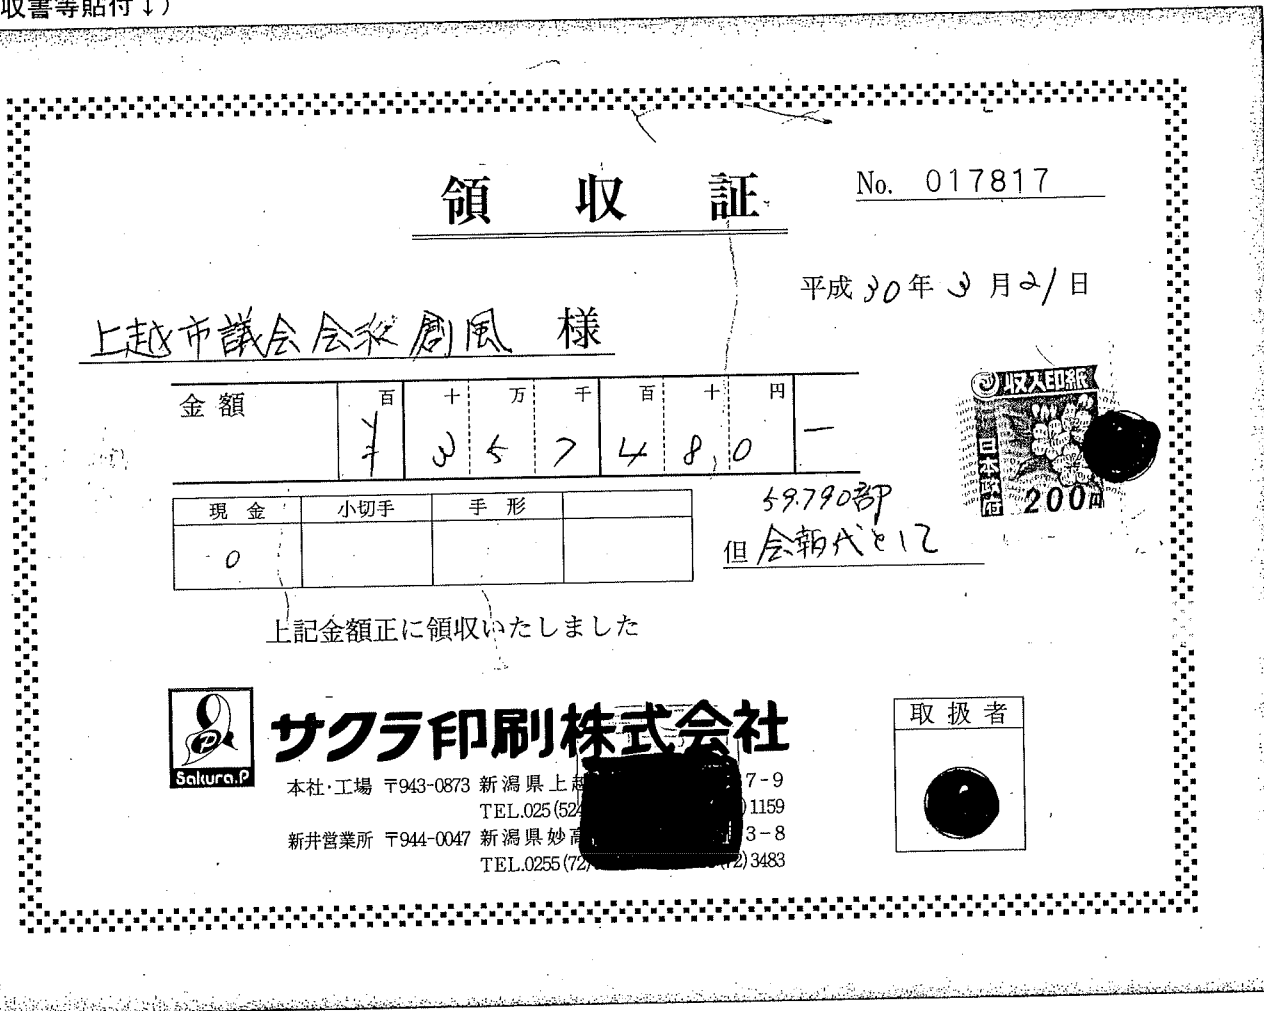 収書等貼付↓)
領収証
No. 017817
平成30年3月21日
上越市議会会派創風 様
金額
百 十 万 千 百 十 円
¥ 3 5 7 4 8 0 ー
収入印紙
日本政府
200円
現金 小切手 手形
0
59.790部
但 会報代として
上記金額正に領収いたしました
Sakura.P
サクラ印刷株式会社
本社・工場 〒943-0873 新潟県上越 7-9
TEL.025(524 )1159
新井営業所 〒944-0047 新潟県妙高 3-8
TEL.0255(72) (72)3483
取扱者